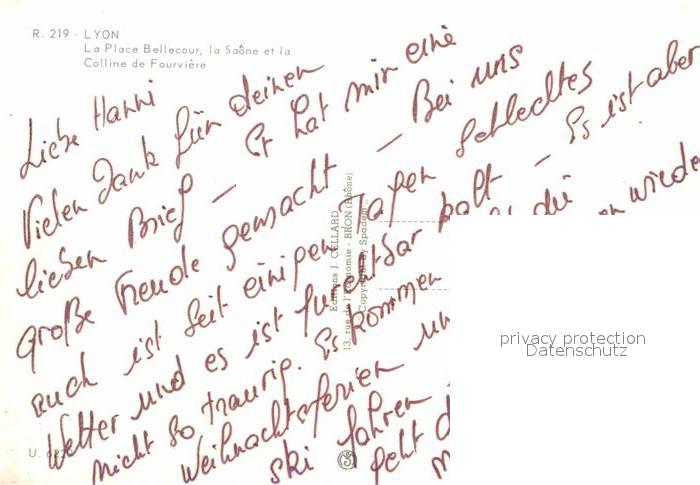 R. 219 - LYON
La Place Bellecour, la Saône et la
Colline de Fourvière
Liebe Hanni
Vielen Dank für deinen
lieben Brief - Er hat mir eine
große Freude gemacht - Bei uns
auch ist seit einigen Tagen schlechtes
Wetter und es ist furchtbar kalt - Es ist aber
nicht so traurig. Es kommen die wieder
Weihnachtsferien
ski fahren
geht
Editions J. CELLARD
13, rue de l'Economie - BRON (Rhône)
Copyright by Spadem
U.
privacy protection
Datenschutz